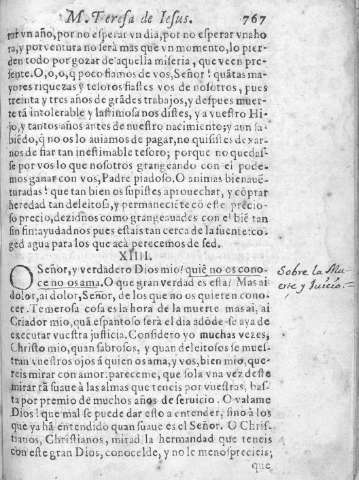 M. Teresa de Iesus. 767
rar vn año, por no esperar vn dia, por no esperar vna ho
ra, y por ventura no sera mas que vn momento, lo pier-
den todo por gozar de aquella miseria, que veen pre-
sente. O, o, o, q̃ poco fiamos de vos, Señor! quãtas ma-
yores riquezas y tesoros fiastes vos de nosotros, pues
treinta y tres años de grãdes trabajos, y despues muer-
te tã intolerable y lastimosa nos distes, y a vuestro Hi-
jo, y tantos años antes de nuestro nacimiento; y aun sa-
biẽdo, q̃ no os lo auiamos de pagar, no quisistes dexar-
nos de fiar tan inestimable tesoro; porque no quedas-
se por vos lo que nosotros grangeando con el pode-
mos ganar con vos, Padre piadoso. O animas bienauẽ-
turadas! que tan bien os supistes aprouechar, y cõprar
heredad tan deleitosa, y permaneciẽte cõ este precio-
so precio, dezidnos como grangeauades con el biẽ tan
sin fin: ayudad nos pues estais tan cerca de la fuente: co-
ged agua para los que acà perecemos de sed.
XIIII.
O Señor, y verdadero Dios mio! quiẽ no os cono-
ce no os ama. O que gran verdad es esta! Mas ai
dolor, ai dolor, Señor, de los que no os quieren cono-
cer. Temerosa cosa es la hora de la muerte mas ai, ai
Criador mio, quã espantoso serà el dia adõde se aya de
executar vuestra justicia. Considero yo muchas vezes,
Christo mio, quan sabrosos, y quan deleitosos se mues-
tran vuestros ojos à quien os ama, y vos, bien mio, que-
reis mirar con amor: pareceme, que sola vna vez deste
mirar tã suaue à las almas que teneis por vuestras, bas-
ta por premio de muchos años de seruicio. O valame
Dios! que mal se puede dar esto a entender, sino à los
que ya hã entendido quan suaue es el Señor. O Chris-
tianos, Christianos, mirad la hermandad que teneis
con este gran Dios, conocelde, y no le menosprecieis;
que
Sobre la Mu-
erte y Juicio.